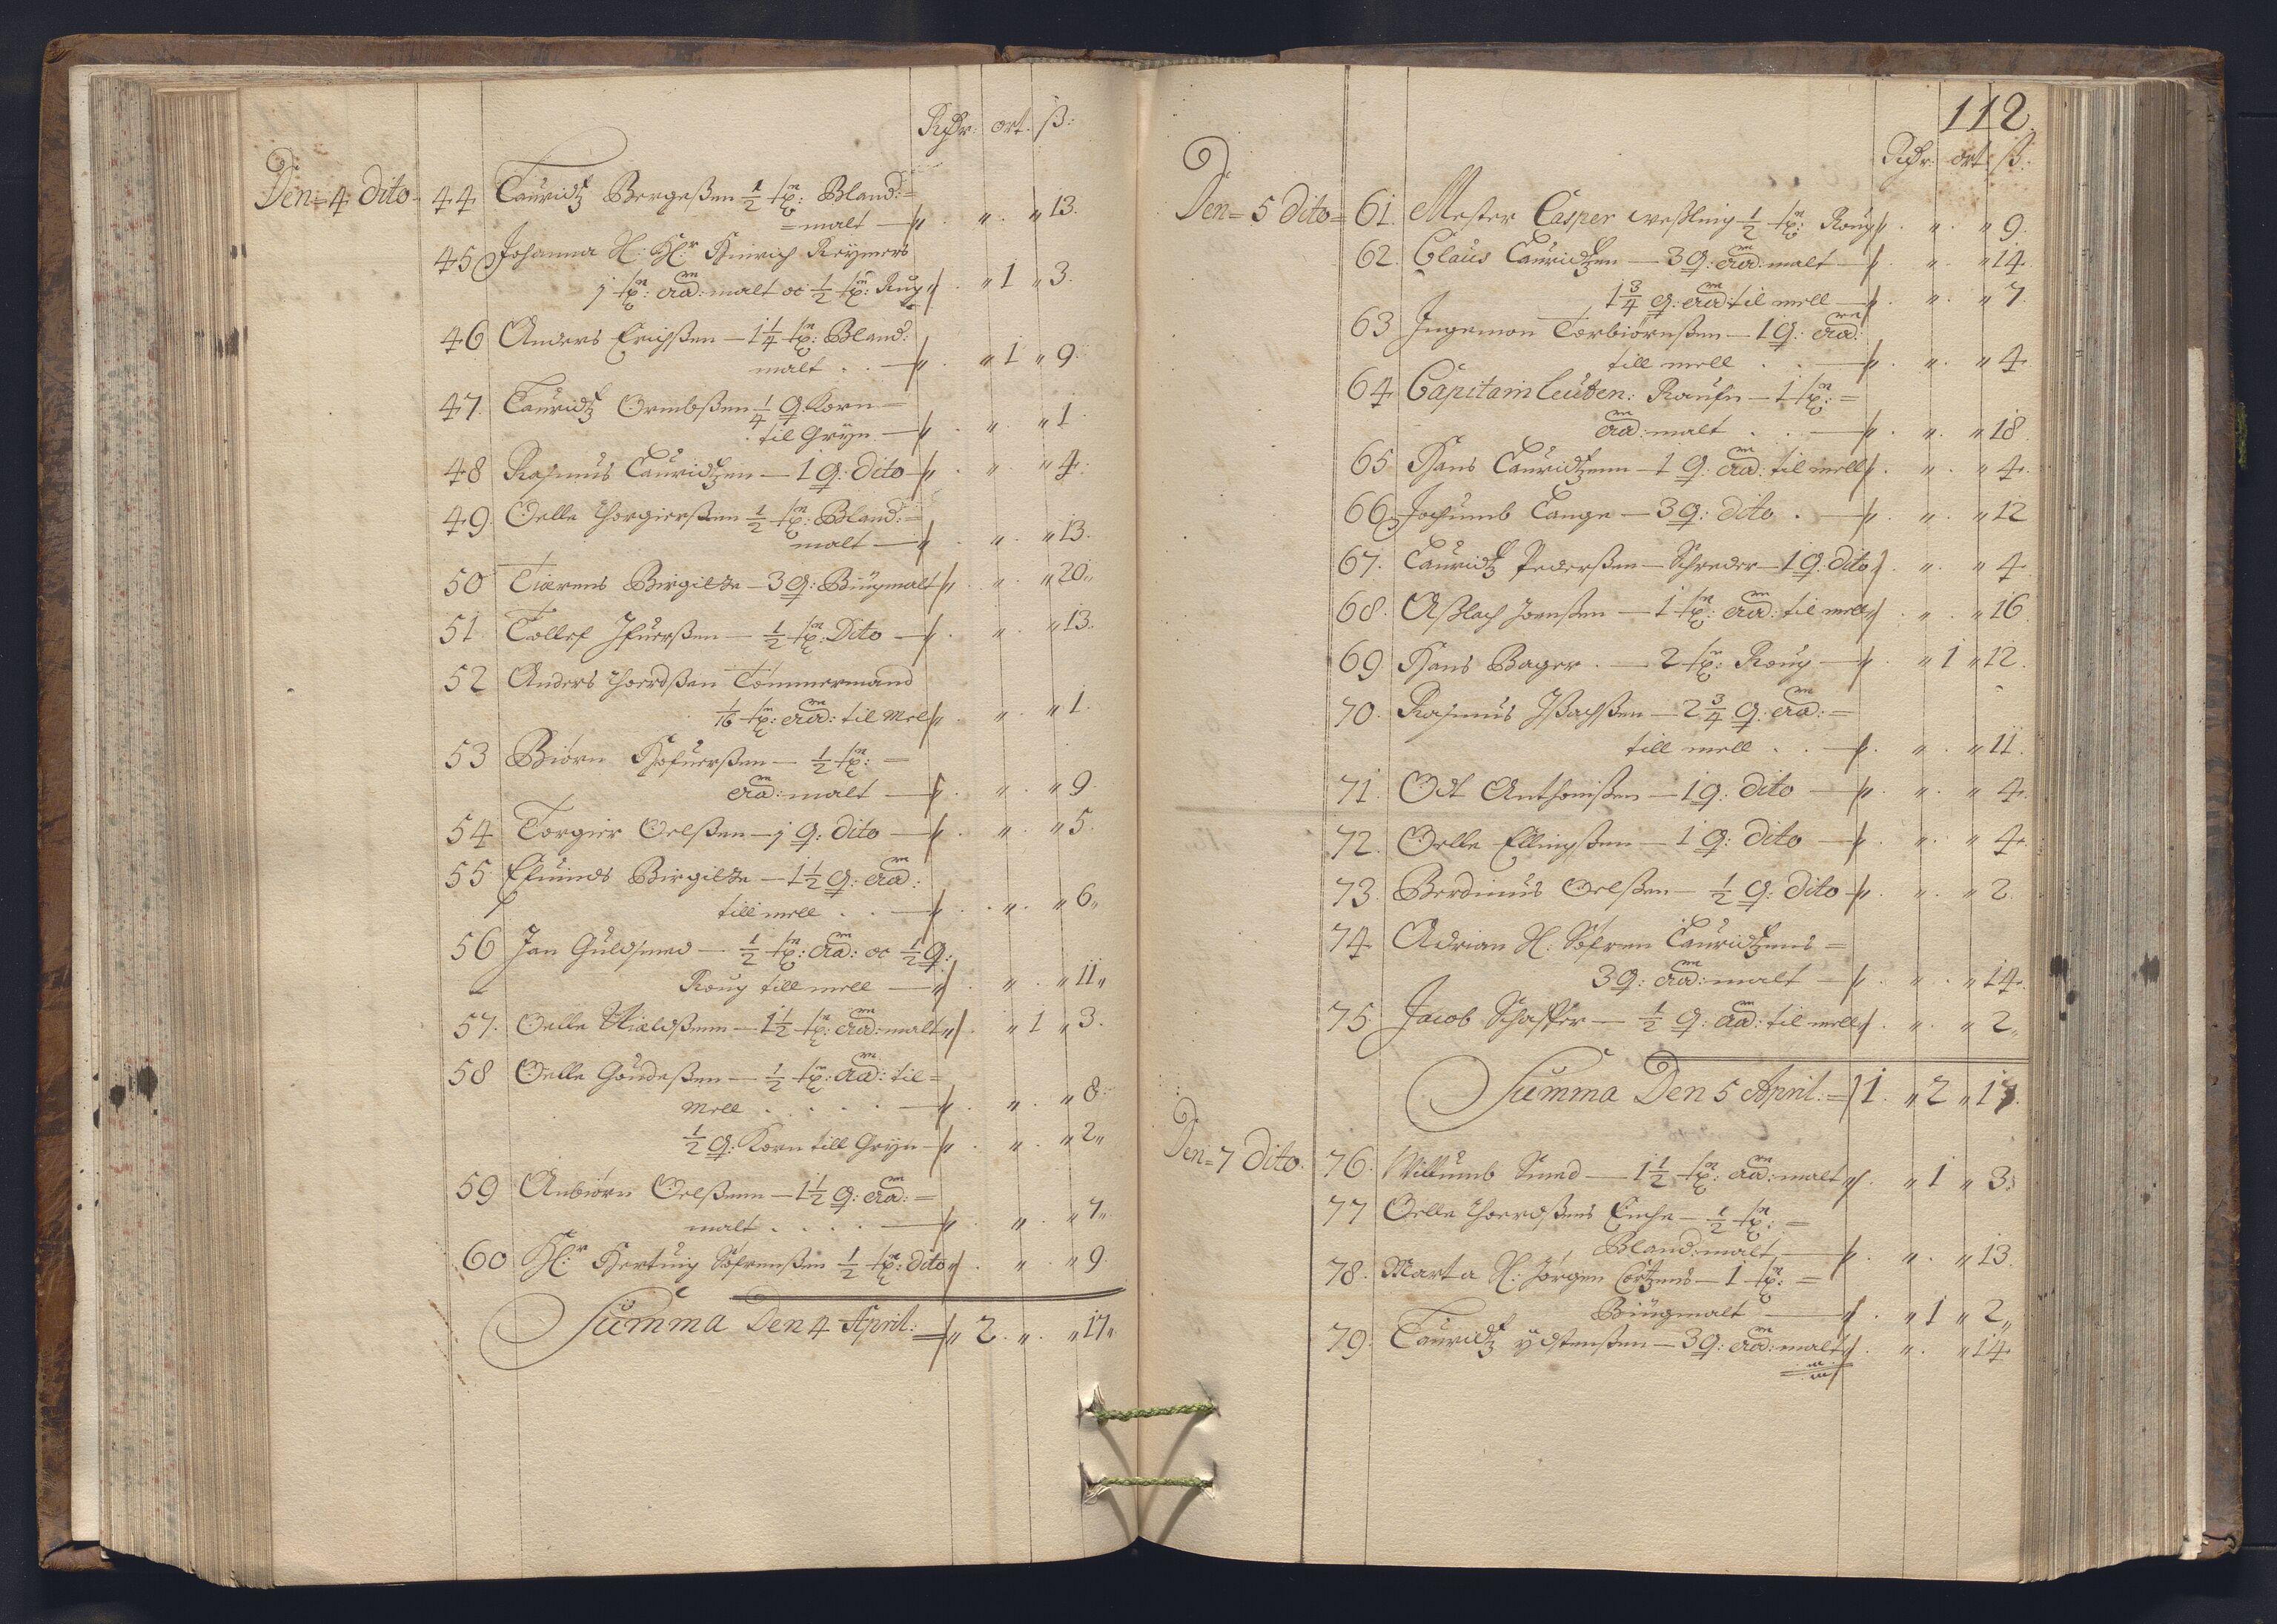 Rdr: ort. ß:
Den=4 dito 44 Lauridtz Bergeßen ½ tn: Bland:=
=malt — " . " . " 13.
45 Johanna Sl: Hr: Hinrich Reymers
1 tn: aad: malt oc ½ tn: Rug " . " 1 " 3.
46 Anders Erichßen — 1¼ tn: Bland:
malt . . — " . " 1 " 9.
47. Lauridtz Ormbßen ¼ q: Korn=
til Gryn — " . " . " 1.
48 Rasmus Lauridtzen — 1 q: dito — " . " . " 4.
49. Oelle Thorgierßen ½ tn: Bland:=
malt — " . " . " 13.
50 Tiærens Birgitte — 3 q: Biugmalt " . " . " 20"
51 Tollef Ifuerßen — ½ tn: Dito — " . " . " 13.
52 Anders Thordßen Tømmermand
1/16 tn: aad: til Mel " . " . " 1.
53 Biørn — ½ tn: =
aad: malt — " . " . " 9.
54 Torgier Oelßen — 1 q: dito — " . " . " 5.
55 Birgitte — 1½ q: aad:
till mell . . — " . " . " 6"
56 Jan Guldsmed — ½ tn: aad: oc ½ q:
Roug till mell — " . " . " 11"
57. Oelle Kieldßenn — 1½ tn: aad: malt " . " 1 " 3.
58 Oelle Goudeßen — ½ tn: aad: til=
Mell . . . . — " . " . " 8.
½ q: Korn till Gryn — " . " . " 2"
59 Anbiørn Oelßenn — 1½ q: aad: =
malt . . . . — " . " . " 7"
60 Hr: Hertuig Søfrenßen ½ tn: dito " . " . " 9.
Summa Den 4 April: = " 2. " . " 17"
112.
Rdr: ort ß:
Den=5 dito= 61. Mester Casper weßling ½ tn: Roug " . " . " 9.
62. Claus Lauridtzen — 3 q: aad: malt — " . " . " 14
1¾ q: aad: til mell — " . " . " 7.
63 Ingemon Torbiørnßen — 1 q: aad:
till mell . . — " . " . " 4.
64 Capitain Leuten: — 1 tn: =
aad: malt . . — " . " . " 18.
65 Hans Lauridtzenn — 1 q: aad: til mell " . " . " 4.
66 Jochumb Lange — 3 q: dito . — " . " . " 12
67. Lauridtz Pederßen — Schreder — 1 q: dito " . " . " 4
68. Aßlach Joenßen — 1 tn: aad: til mell " . " . " 16
69. Hans Bager . — 2 tn: Roug — " . " 1 " 12.
70. Rasmus Ißachßen — 2¾ q: aad: =
till mell . . — " . " . " 11.
71. Odt Anthonißen — 1 q: dito — " . " . " 4.
72. Oelle Ellingßen — 1 q: dito — " . " . " 4.
73. Berdinus Oelßen — ½ q: dito — " . " . " 2.
74. Adrian Sl: Søfren Lauridtzens =
3 q: aad: malt — " . " . " 14.
75. Jacob Schaffer — ½ q: aad: til mell " . " . " 2"
Summa Den 5 April: = 1. " 2 " 17.
Den=7 dito. 76. Willumb Smed — 1½ tn: aad: malt " . " 1 " 3.
77 Oelle Thordßens Enche — ½ tn: =
Bland: malt — " . " . " 13.
78. Marta Sl: Jørgen Cortzens — 1 tn: =
Biugmalt — " . " 1 " 2"
79. Lauridtz ydstenßen — 3 q: aad: malt " . " . " 14